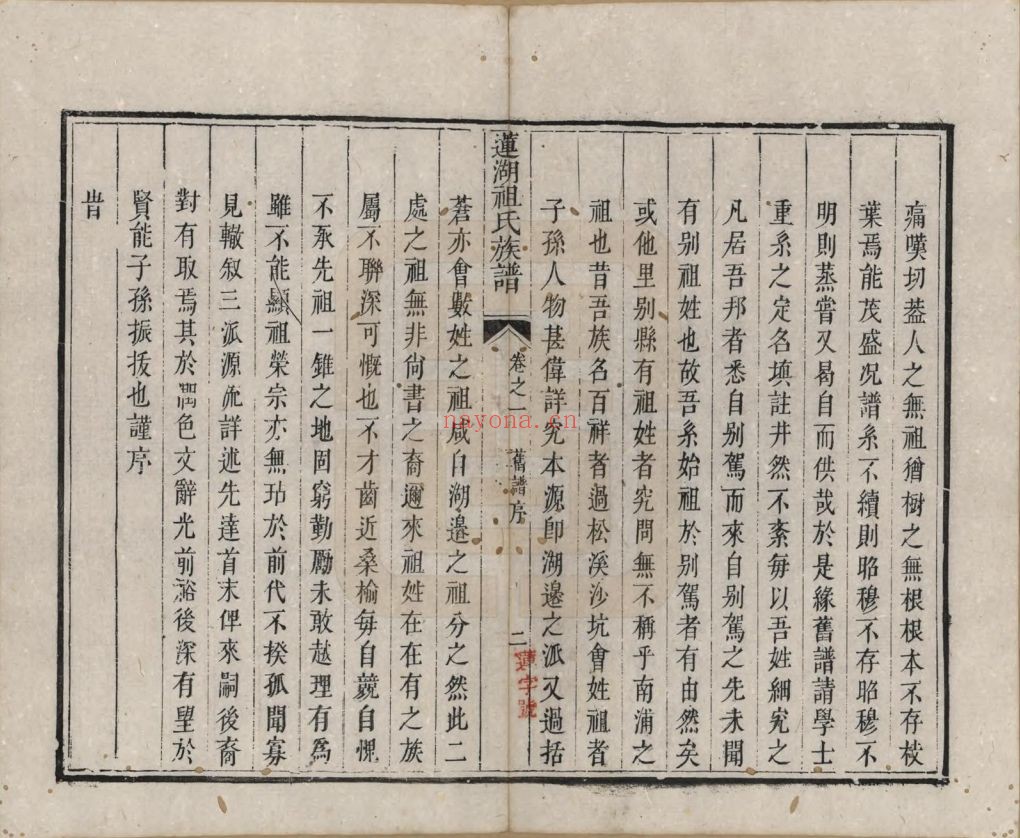 痛嘆切葢人之無祖猶樹之無根根本不存枝
葉焉能茂盛况譜系不續則昭穆不存昭穆不
明則蒸嘗又曷自而供哉於是緣舊譜請學士
重系之定名填註井然不紊每以吾姓細究之
凡居吾邦者悉自别駕而來自别駕之先未聞
有别祖姓也故吾系始祖於别駕者有由然矣
或他里别縣有祖姓者究問無不稱乎南浦之
祖也昔吾族名百祥者過松溪沙坑會姓祖者
子孫人物甚偉詳究本源卽湖邉之派又過括
蓮湖祖氏族譜
卷之一
舊譜序
二
蓮字號
蒼亦會數姓之祖咸自湖邉之祖分之然此二
處之祖無非尙書之裔邇來祖姓在在有之族
屬不聯深可慨也不才齒近桑榆每自競自惕
不承先祖一錐之地固窮勤勵未敢越理有爲
雖不能顯祖榮宗亦無玷於前代不揆孤聞寡
見轍叙三派源流詳述先達首末俾來嗣後裔
對有取焉其於潤色文辭光前裕後深有望於
賢能子孫振拔也謹序
旹
nayona.cn